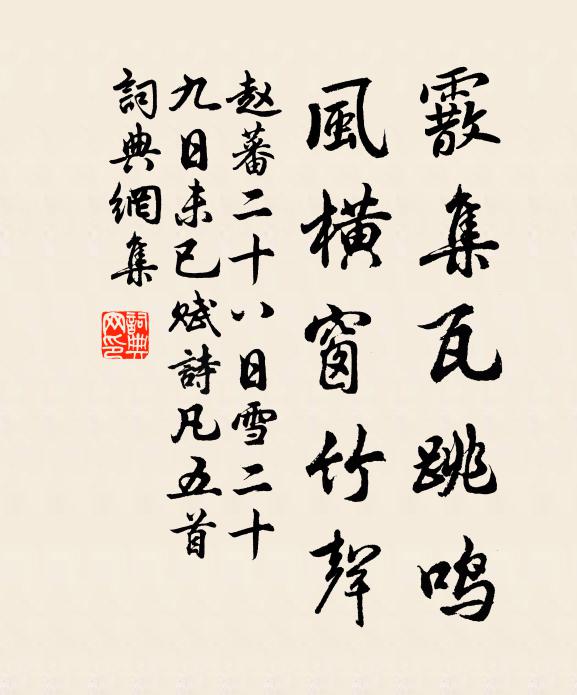 霰集瓦跳鸣
風横窗竹聲
赵蕃二十八日雪二十
九日未已赋詩凡五首
詞典網集
詞典网印